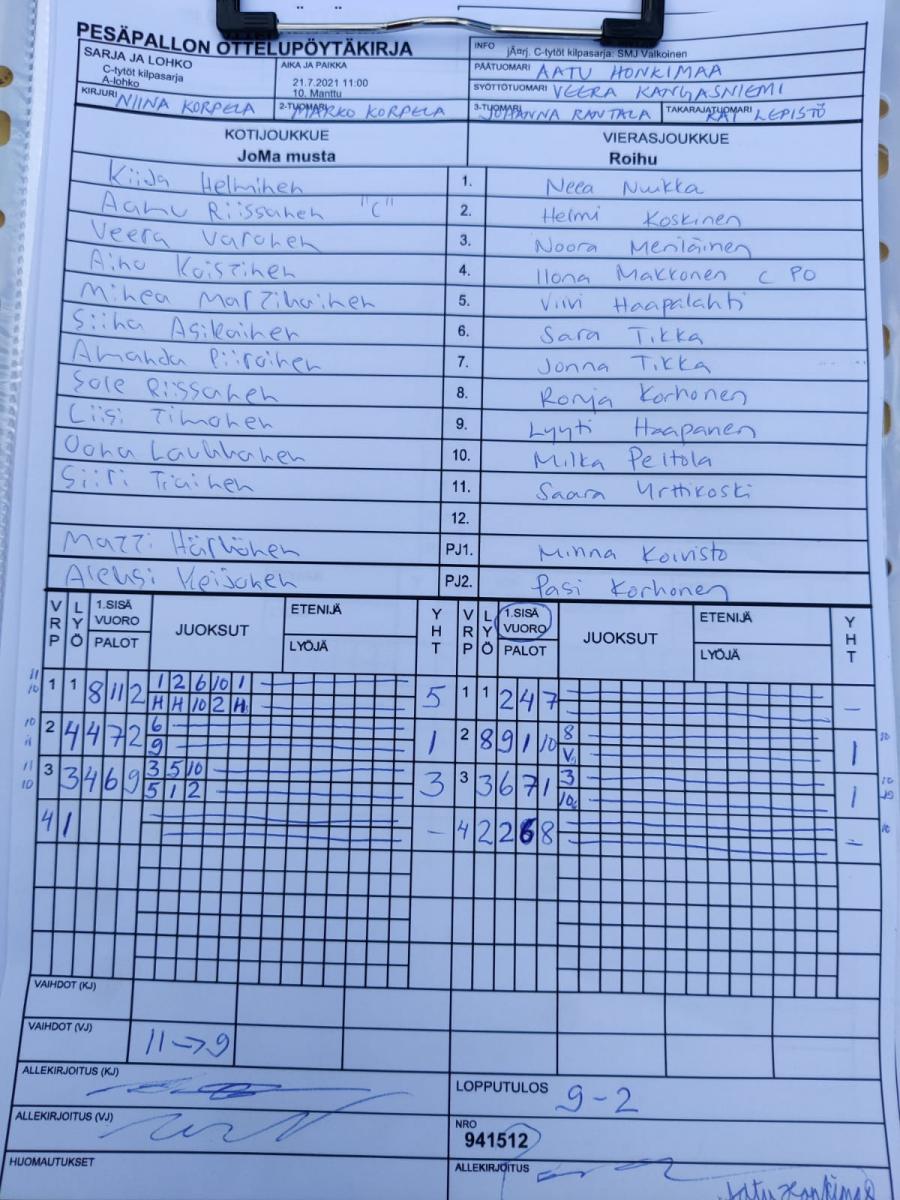 PESÄPALLON OTTELUPÖYTÄKIRJA
SARJA JA LOHKO
C-tytöt kilpasarja
A-lohko
AIKA JA PAIKKA
21.7.2021 11:00
10. Manttu
INFO
jÃ¤rj. C-tytöt kilpasarja: SMJ Valkoinen
PÄÄTUOMARI AATU HONKIMAA
SYÖTTÖTUOMARI VEERA KANGASNIEMI
KIRJURI NIINA KORPELA
2-TUOMARI MARKO KORPELA
3-TUOMARI JOHANNA RANTALA
TAKARAJATUOMARI KAI LEPISTÖ
KOTIJOUKKUE
JoMa musta
VIERASJOUKKUE
Roihu
Kiida Helminen 1. Neea Nuikka
Aamu Riissanen "C" 2. Helmi Koskinen
Veera Varonen 3. Noora Meriläinen
Aino Koistinen 4. Ilona Makkonen C PO
Minea Martikainen 5. Viivi Haapalahti
Siina Asikainen 6. Sara Tikka
Amanda Piirainen 7. Jonna Tikka
Sole Riissanen 8. Ronja Korhonen
Liisi Timonen 9. Lyyti Haapanen
Oona Laukkanen 10. Milka Peltola
Siiri Tiainen 11. Saara Urttikoski
12.
Matti Härkönen PJ1. Minna Koivisto
Aleksi Keijonen PJ2. Pasi Korhonen
VRP LYÖ 1.SISÄ VUORO PALOT JUOKSUT ETENIJÄ LYÖJÄ YHT VRP LYÖ 1.SISÄ VUORO PALOT JUOKSUT ETENIJÄ LYÖJÄ YHT
1 1 8 11 2 1 2 6 10 1 5 1 1 2 4 7 -
H H 10 2 H
2 4 4 7 2 6 1 2 8 9 1 10 8 1
9 V
3 3 4 6 9 3 5 10 3 3 3 6 7 1 3 1
5 1 2 10
4 1 - 4 2 2 6 8 -
VAIHDOT (KJ)
VAIHDOT (VJ) 11→9
ALLEKIRJOITUS (KJ)
LOPPUTULOS 9-2
ALLEKIRJOITUS (VJ)
NRO
941512
HUOMAUTUKSET
ALLEKIRJOITUS